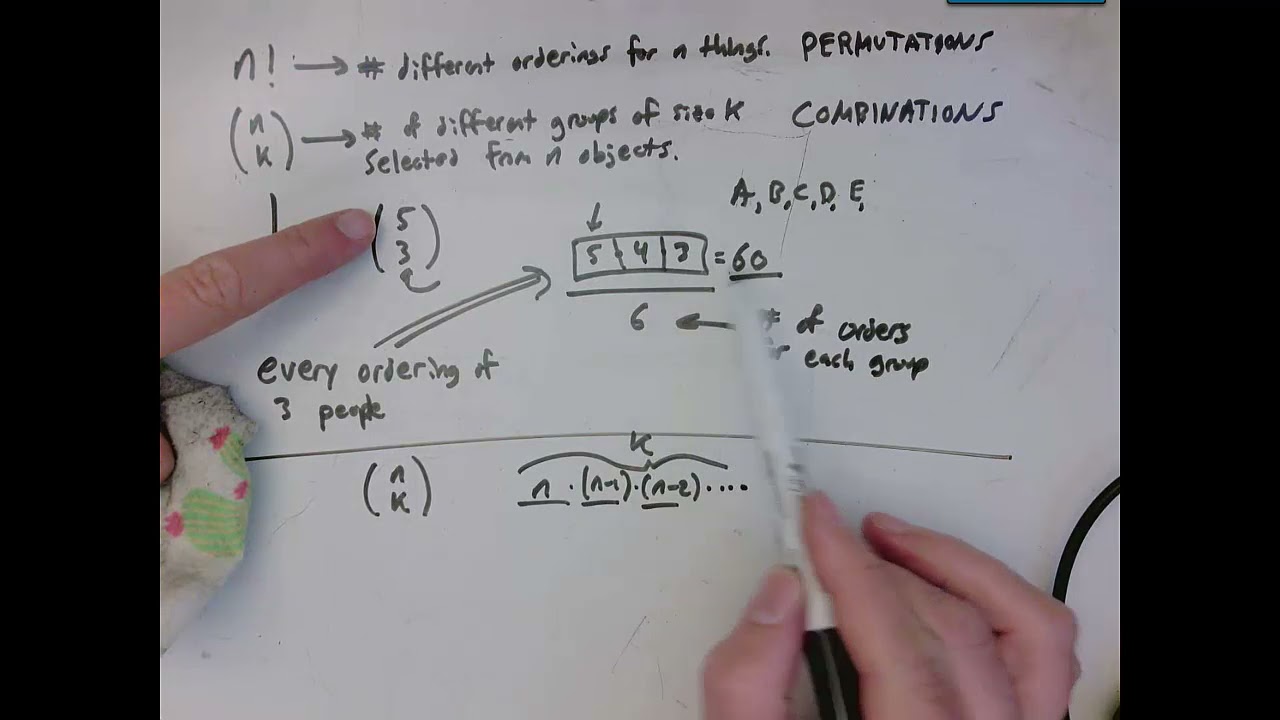 n! → # different orderings for n things. PERMUTATIONS
(n k) → # of different groups of size k COMBINATIONS
selected from n objects.
A, B, C, D, E,
(5 3)
5 | 4 | 3 = 60
6 ← # of orders
each group
every ordering of
3 people
k
(n k) n · (n-1) · (n-2) · ....